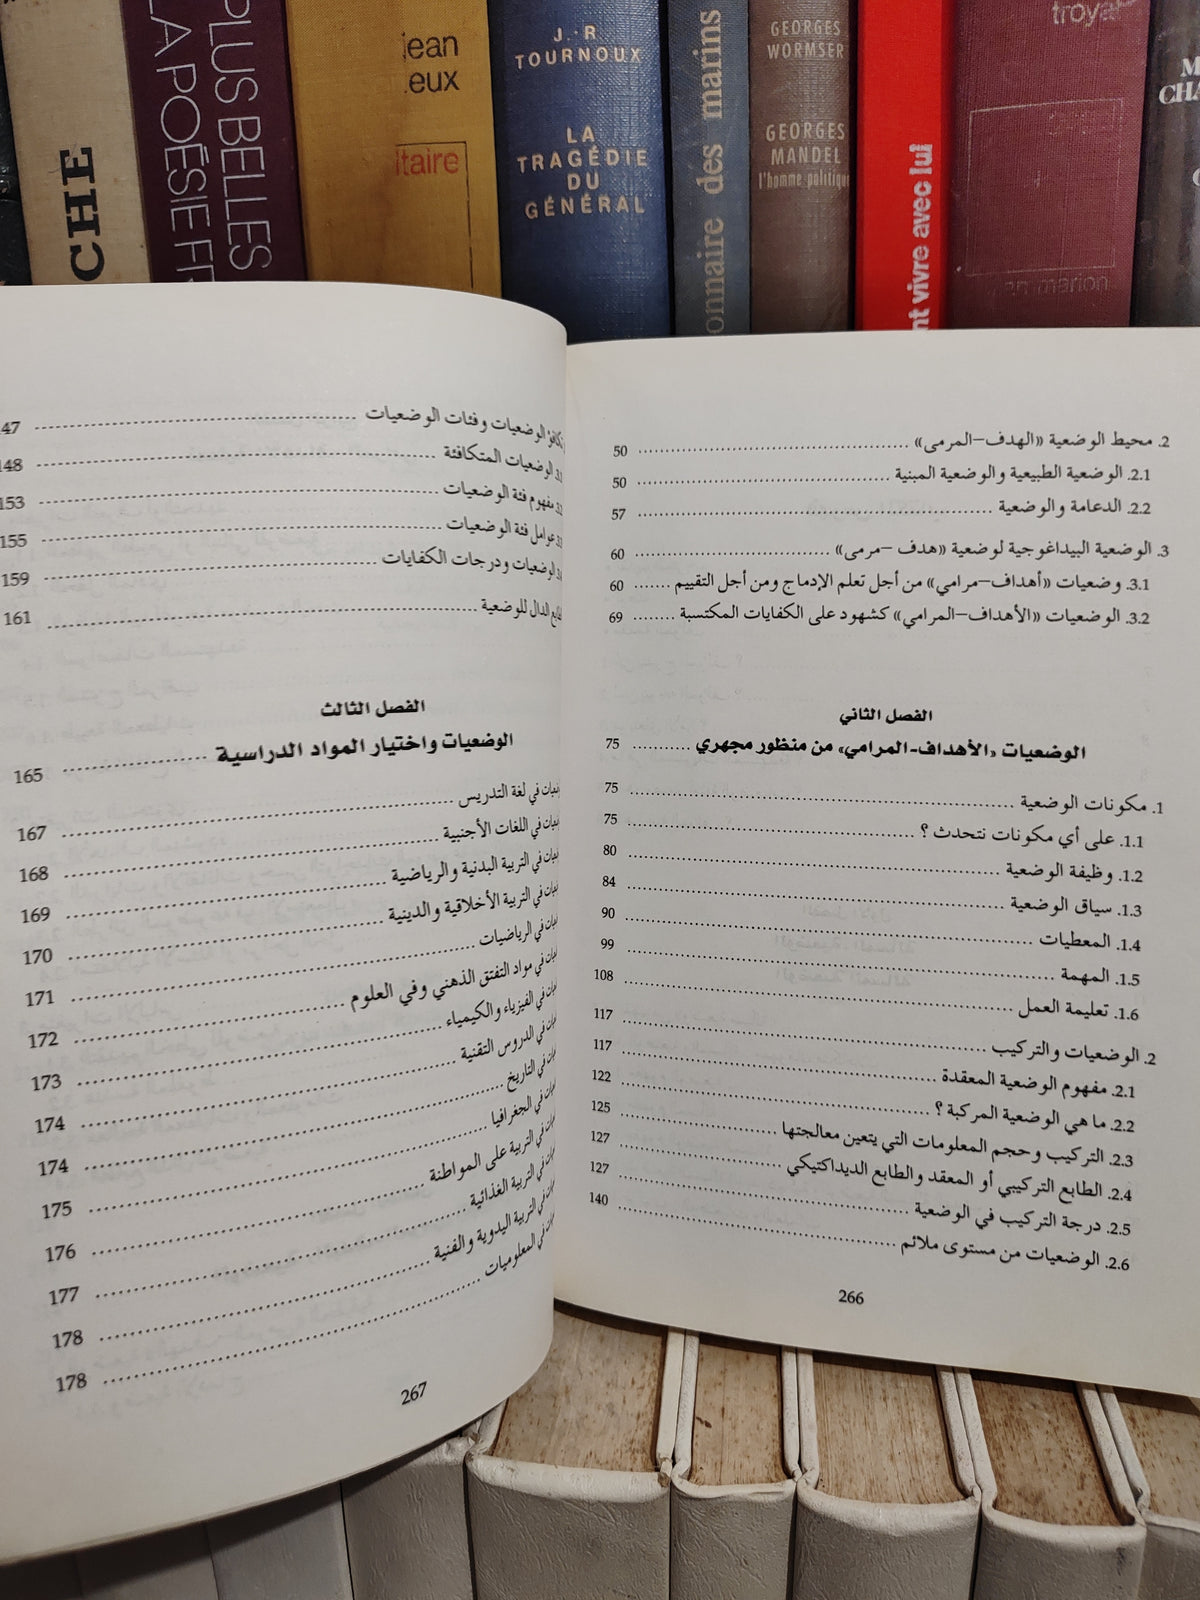 CHE
PLUS BELLES
LA POÉSIE FR
jean
eux
itaire
J.-R
TOURNOUX
LA
TRAGÉDIE
DU
GÉNÉRAL
onnaire des marins
GEORGES
WORMSER
GEORGES
MANDEL
l'homme politique
nt vivre avec lui
troya
an marion
M
CHA
2. محيط الوضعية «الهدف–المرمى» 50
2.1. الوضعية الطبيعية والوضعية المبنية 50
2.2. الدعامة والوضعية 57
3. الوضعية البيداغوجية لوضعية «هدف –مرمى» 60
3.1. وضعيات «أهداف–مرامي» من أجل تعلم الإدماج ومن أجل التقييم 60
3.2. الوضعيات «الأهداف–المرامي» كشهود على الكفايات المكتسبة 69
الفصل الثاني
الوضعيات «الأهداف-المرامي» من منظور مجهري 75
1. مكونات الوضعية 75
1.1. على أي مكونات نتحدث ؟ 75
1.2. وظيفة الوضعية 80
1.3. سياق الوضعية 84
1.4. المعطيات 90
1.5. المهمة 99
1.6. تعليمة العمل 108
2. الوضعيات والتركيب 117
2.1. مفهوم الوضعية المعقدة 117
2.2. ما هي الوضعية المركبة ؟ 122
2.3. التركيب وحجم المعلومات التي يتعين معالجتها 125
2.4. الطابع التركيبي أو المعقد والطابع الديداكتيكي 127
2.5. درجة التركيب في الوضعية 127
2.6. الوضعيات من مستوى ملائم 140
266
الوضعيات وفئات الوضعيات 47
الوضعيات المتكافئة 148
مفهوم فئة الوضعيات 153
عوامل فئة الوضعيات 155
الوضعيات ودرجات الكفايات 159
الدال للوضعية 161
الفصل الثالث
الوضعيات واختيار المواد الدراسية 165
في لغة التدريس 167
في اللغات الأجنبية 168
في التربية البدنية والرياضية 169
في التربية الأخلاقية والدينية 170
في الرياضيات 171
في مواد التفتق الذهني وفي العلوم 172
في الفيزياء والكيمياء 173
في الدروس التقنية 174
في التاريخ 174
في الجغرافيا 175
في التربية على المواطنة 176
في التربية الغذائية 177
في التربية اليدوية والفنية 178
في المعلوميات 178
267